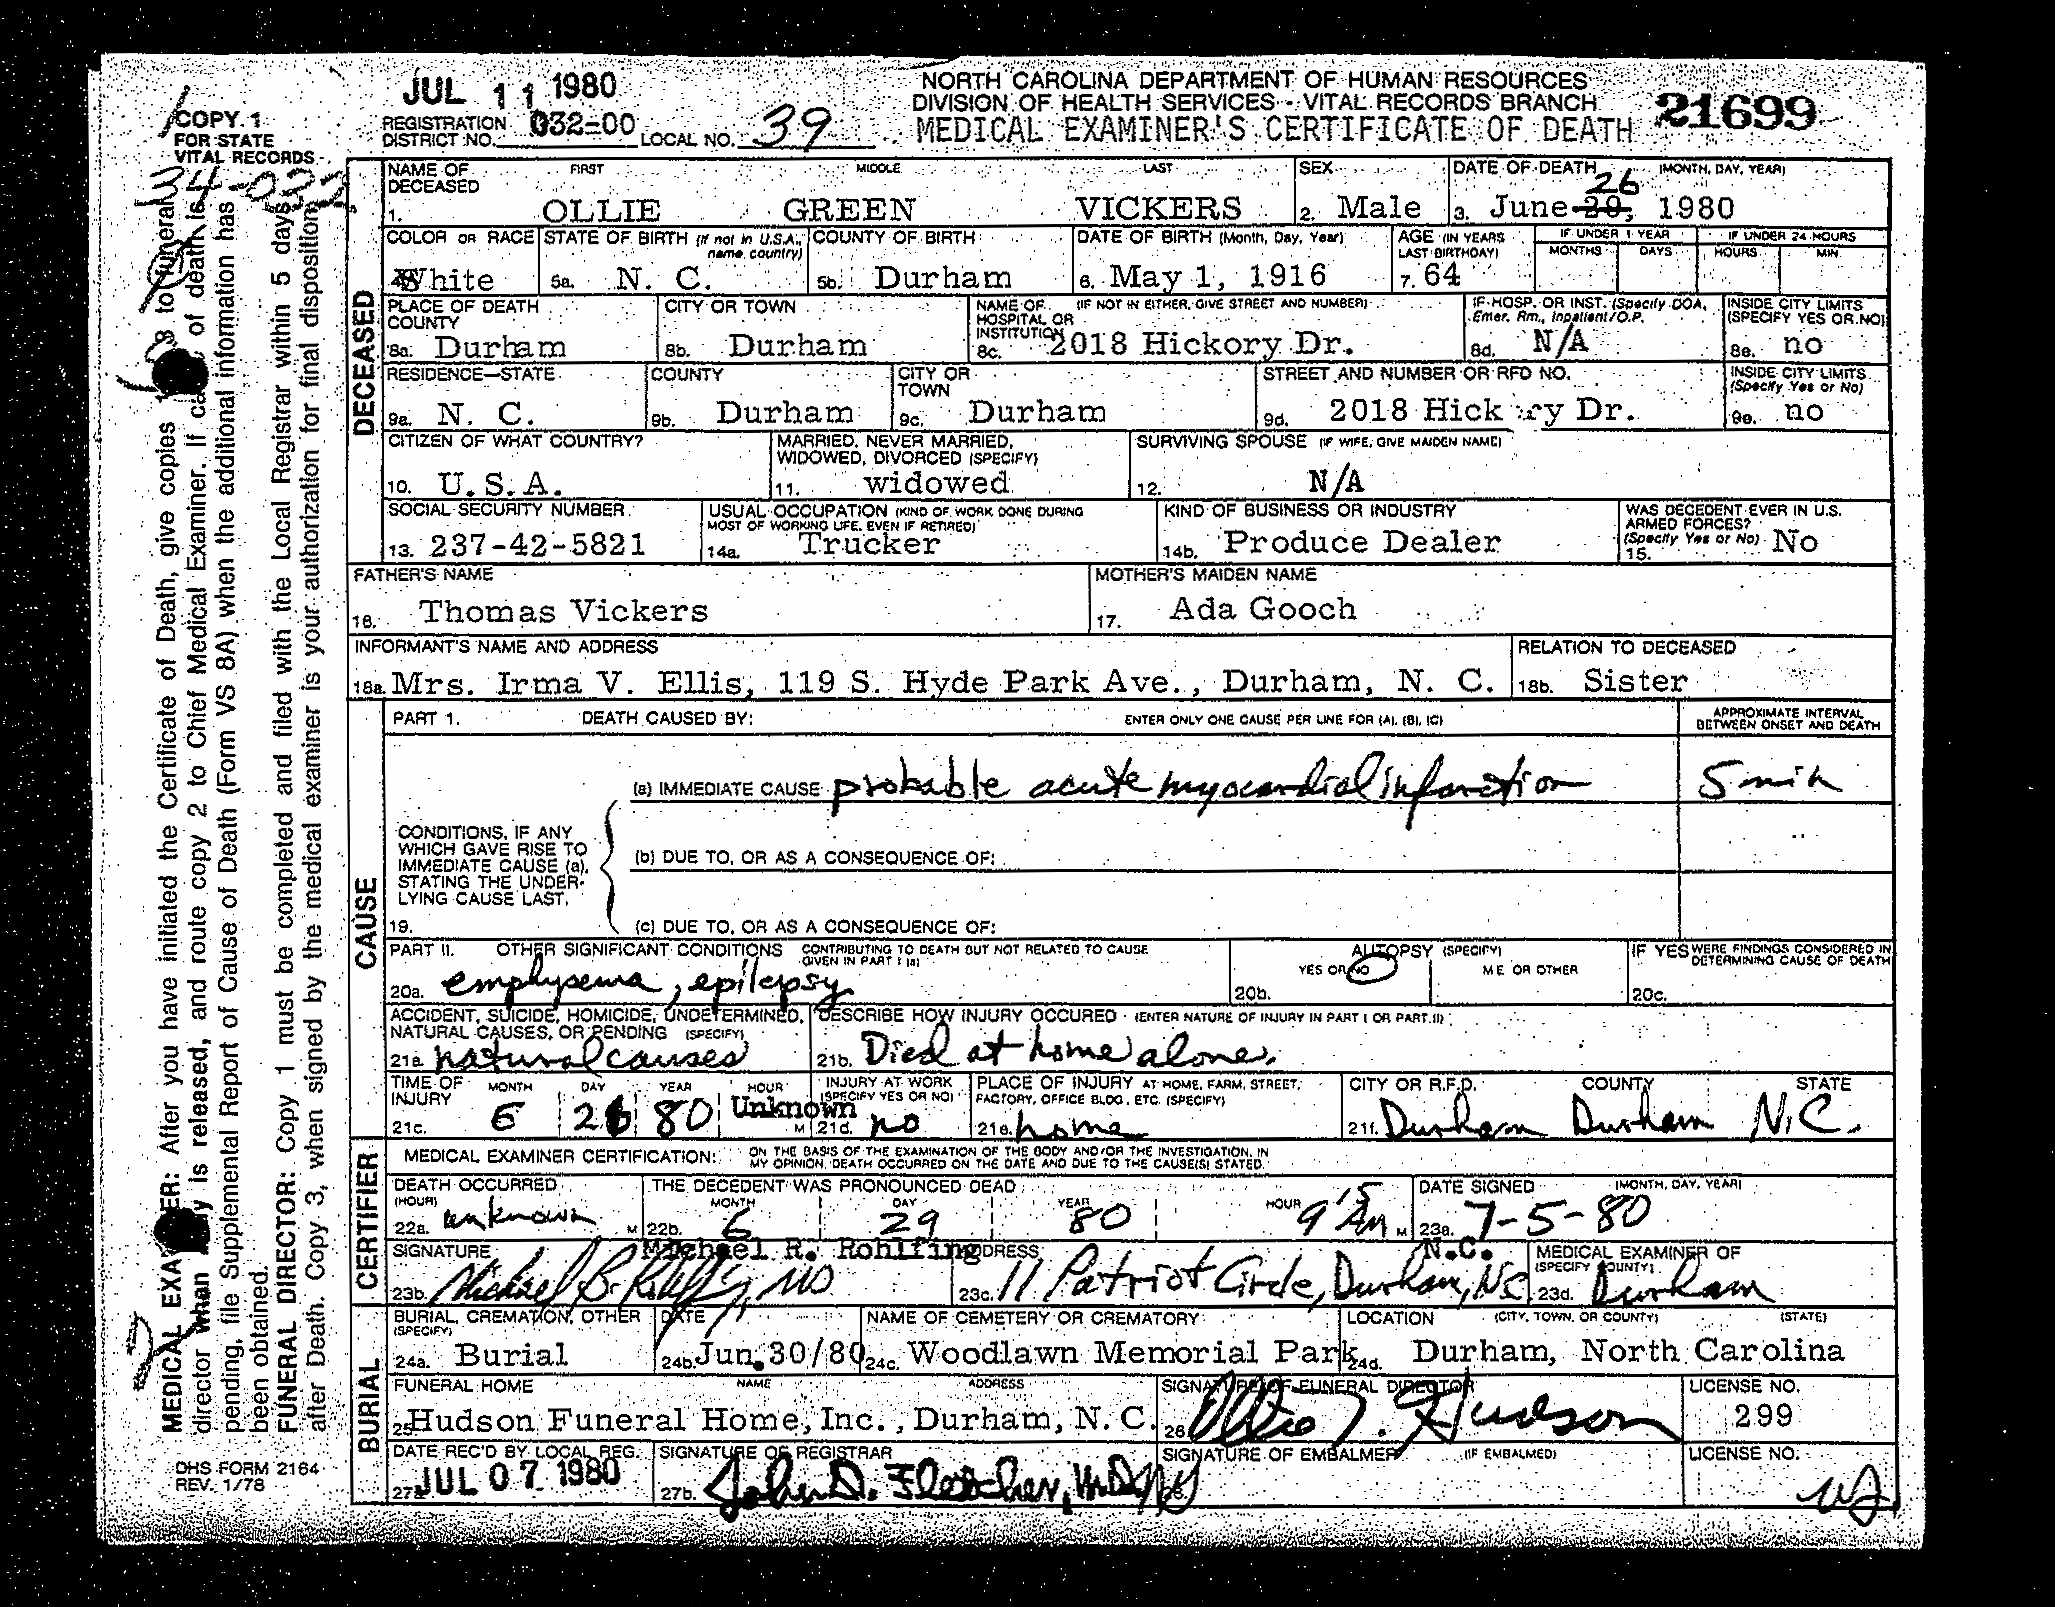 JUL 11 1980
NORTH CAROLINA DEPARTMENT OF HUMAN RESOURCES
DIVISION OF HEALTH SERVICES - VITAL RECORDS BRANCH
MEDICAL EXAMINER'S CERTIFICATE OF DEATH 21699
COPY 1
FOR STATE
VITAL RECORDS
REGISTRATION DISTRICT NO. 032-00 LOCAL NO. 39
34-032
NAME OF DECEASED FIRST MIDDLE LAST SEX DATE OF DEATH (MONTH, DAY, YEAR)
1. OLLIE GREEN VICKERS 2. Male 3. June 29, 26 1980
COLOR OR RACE STATE OF BIRTH (If not in U.S.A., name country) COUNTY OF BIRTH DATE OF BIRTH (Month, Day, Year) AGE (IN YEARS LAST BIRTHDAY) IF UNDER 1 YEAR MONTHS DAYS IF UNDER 24 HOURS HOURS MIN.
4. White 5a. N. C. 5b. Durham 6. May 1, 1916 7. 64
PLACE OF DEATH COUNTY CITY OR TOWN NAME OF HOSPITAL OR INSTITUTION (IF NOT IN EITHER, GIVE STREET AND NUMBER) IF HOSP. OR INST. (Specify DOA, Emer. Rm., Inpatient/O.P. INSIDE CITY LIMITS (SPECIFY YES OR NO)
8a. Durham 8b. Durham 8c. 2018 Hickory Dr. 8d. N/A 8e. no
RESIDENCE—STATE COUNTY CITY OR TOWN STREET AND NUMBER OR RFD NO. INSIDE CITY LIMITS (Specify Yes or No)
9a. N. C. 9b. Durham 9c. Durham 9d. 2018 Hick ry Dr. 9e. no
CITIZEN OF WHAT COUNTRY? MARRIED, NEVER MARRIED, WIDOWED, DIVORCED (SPECIFY) SURVIVING SPOUSE (IF WIFE, GIVE MAIDEN NAME)
10. U.S.A. 11. widowed 12. N/A
SOCIAL SECURITY NUMBER USUAL OCCUPATION (KIND OF WORK DONE DURING MOST OF WORKING LIFE, EVEN IF RETIRED) KIND OF BUSINESS OR INDUSTRY WAS DECEDENT EVER IN U.S. ARMED FORCES? (Specify Yes or No)
13. 237-42-5821 14a. Trucker 14b. Produce Dealer 15. No
FATHER'S NAME MOTHER'S MAIDEN NAME
16. Thomas Vickers 17. Ada Gooch
INFORMANT'S NAME AND ADDRESS RELATION TO DECEASED
18a. Mrs. Irma V. Ellis, 119 S. Hyde Park Ave., Durham, N. C. 18b. Sister
PART 1. DEATH CAUSED BY: ENTER ONLY ONE CAUSE PER LINE FOR (A), (B), (C) APPROXIMATE INTERVAL BETWEEN ONSET AND DEATH
(a) IMMEDIATE CAUSE probable acute myocardial infarction 5 min
CONDITIONS, IF ANY WHICH GAVE RISE TO IMMEDIATE CAUSE (a), STATING THE UNDER-LYING CAUSE LAST.
(b) DUE TO, OR AS A CONSEQUENCE OF:
19. (c) DUE TO, OR AS A CONSEQUENCE OF:
PART II. OTHER SIGNIFICANT CONDITIONS CONTRIBUTING TO DEATH BUT NOT RELATED TO CAUSE GIVEN IN PART I (a) AUTOPSY (SPECIFY) YES OR NO ME OR OTHER IF YES WERE FINDINGS CONSIDERED IN DETERMINING CAUSE OF DEATH
20a. emphysema, epilepsy 20b. 20c.
ACCIDENT, SUICIDE, HOMICIDE, UNDETERMINED, NATURAL CAUSES, OR PENDING (SPECIFY) DESCRIBE HOW INJURY OCCURED (ENTER NATURE OF INJURY IN PART I OR PART II)
21a. natural causes 21b. Died at home alone.
TIME OF INJURY MONTH DAY YEAR HOUR INJURY AT WORK (SPECIFY YES OR NO) PLACE OF INJURY AT HOME, FARM, STREET, FACTORY, OFFICE BLDG., ETC. (SPECIFY) CITY OR R.F.D. COUNTY STATE
21c. 6 26 80 Unknown M 21d. no 21e. home 21f. Durham Durham N.C.
MEDICAL EXAMINER CERTIFICATION: ON THE BASIS OF THE EXAMINATION OF THE BODY AND/OR THE INVESTIGATION, IN MY OPINION, DEATH OCCURRED ON THE DATE AND DUE TO THE CAUSE(S) STATED.
DEATH OCCURRED (HOUR) THE DECEDENT WAS PRONOUNCED DEAD MONTH DAY YEAR HOUR DATE SIGNED (MONTH, DAY, YEAR)
22a. unknown M 22b. 6 29 80 9 15 AM M 23a. 7-5-80
SIGNATURE Michael R. Rohlfing ADDRESS N.C. MEDICAL EXAMINER OF (SPECIFY COUNTY)
23b. 23c. 11 Patriot Circle, Durham, NC 23d. Durham
BURIAL, CREMATION, OTHER (SPECIFY) DATE NAME OF CEMETERY OR CREMATORY LOCATION (CITY, TOWN, OR COUNTY) (STATE)
24a. Burial 24b. Jun. 30/80 24c. Woodlawn Memorial Park 24d. Durham, North Carolina
FUNERAL HOME NAME ADDRESS SIGNATURE OF FUNERAL DIRECTOR LICENSE NO.
25. Hudson Funeral Home, Inc., Durham, N.C. 26. Hudson 299
DATE REC'D BY LOCAL REG. SIGNATURE OF REGISTRAR SIGNATURE OF EMBALMER (IF EMBALMED) LICENSE NO.
27a. JUL 07 1980 27b. John D. Fletcher, M.D.
DECEASED
CAUSE
CERTIFIER
BURIAL
MEDICAL EXA ER: After you have initiated the Certificate of Death, give copies to funeral
director when is released, and route copy 2 to Chief Medical Examiner. If of death is
pending, file Supplemental Report of Cause of Death (Form VS 8A) when the additional information has
been obtained.
FUNERAL DIRECTOR: Copy 1 must be completed and filed with the Local Registrar within 5 days
after Death. Copy 3, when signed by the medical examiner is your authorization for final disposition
DHS FORM 2164
REV. 1/78